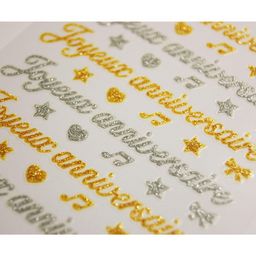 Joyeux anniversaire
Joyeux anniversaire
Joyeux anniversaire
Joyeux anniversaire
anniversaire